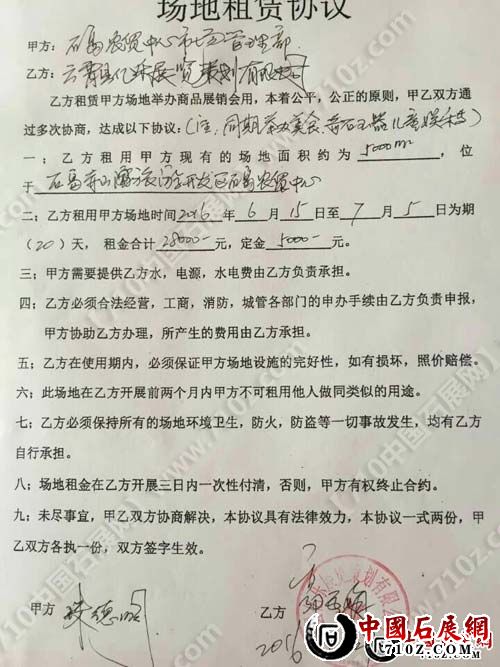 场地租赁协议
甲方：石岛农贸中心市场管理部
乙方：云霄县亿环展览策划有限公司
乙方租赁甲方场地举办商品展销会用，本着公平，公正的原则，甲乙双方通
过多次协商，达成以下协议：（注：同期茶文美食
一；乙方租用甲方现有的场地面积约为5000㎡，位
于 石岛 开发区石岛农贸中心
二；乙方租用甲方场地时间2016年6月15日至7月5日为期
（20）天，租金合计28000-元，定金5000-元。
三；甲方需要提供乙方水，电源，水电费由乙方负责承担。
四；乙方必须合法经营，工商，消防，城管各部门的申办手续由乙方负责申报，
甲方协助乙方办理，所产生的费用由乙方承担。
五；乙方在使用期内，必须保证甲方场地设施的完好性，如有损坏，照价赔偿。
六；此场地在乙方开展前两个月内甲方不可租用他人做同类似的用途。
七；乙方必须保持所有的场地环境卫生，防火，防盗等一切事故发生，均有乙方
自行承担。
八；场地租金在乙方开展三日内一次性付清，否则，甲方有权终止合约。
九；未尽事宜，甲乙双方协商解决，本协议具有法律效力，本协议一式两份，甲
乙双方各执一份，双方签字生效。
甲方
乙方
2016
中國石展網
www.7102.com